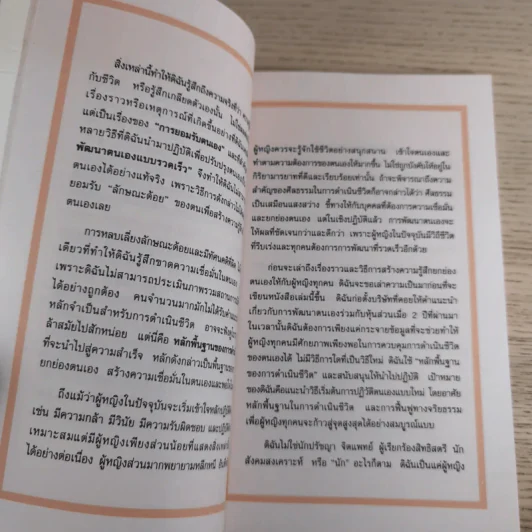 สิ่งเหล่านี้ทำให้ดิฉันรู้สึกถึงความจริงที่ว่า
กับชีวิต หรือรู้สึกเกลียดตัวเองนั้น ไม่ใช่
เรื่องราวหรือเหตุการณ์ที่เกิดขึ้นอย่าง
แต่เป็นเรื่องของ "การยอมรับตนเอง" และ
หลายวิธีที่ดิฉันนำมาปฏิบัติเพื่อปรับปรุงตนเอง
พัฒนาตนเองแบบรวดเร็ว" จึงทำให้ดิฉัน
ตนเองได้อย่างแท้จริง เพราะวิธีการดังกล่าว
ยอมรับ "ลักษณะด้อย" ของตนเพื่อสร้างความรู้สึก
ตนเองเลย
การหลบเลี่ยงลักษณะด้อยและมีทัศนคติที่
เดียวที่ทำให้ดิฉันรู้สึกขาดความเชื่อมั่นในตนเอง
เพราะดิฉันไม่สามารถประเมินภาพรวมสถานการณ์
ได้อย่างถูกต้อง คนจำนวนมากมักไม่ได้รับ
หลักจำเป็นสำหรับการดำเนินชีวิต อาจจะฟังดู
ล้าสมัยไปสักหน่อย แต่นี่คือ หลักพื้นฐานของการ
ที่จะนำไปสู่ความสำเร็จ หลักดังกล่าวเป็นพื้นฐาน
ยกย่องตนเอง สร้างความเชื่อมั่นในตนเองและ
ถึงแม้ว่าผู้หญิงในปัจจุบันจะเริ่มเข้าใจหลักปฏิบัติ
เช่น มีความกล้า มีวินัย มีความรับผิดชอบ และ
เหมาะสมแต่มีผู้หญิงเพียงส่วนน้อยที่แสดงสิ่งเหล่า
ได้อย่างต่อเนื่อง ผู้หญิงส่วนมากพยายามหลีกหนี
ผู้หญิงควรจะรู้จักใช้ชีวิตอย่างสนุกสนาน เข้าใจตนเองและ
ทำตามความต้องการของตนเองให้มากขึ้น ไม่ใช่ถูกบังคับให้อยู่ใน
กิริยามารยาทที่ดีและเรียบร้อยเท่านั้น ถ้าจะพิจารณาถึงความ
สำคัญของศีลธรรมในการดำเนินชีวิตก็อาจกล่าวได้ว่า ศีลธรรม
เป็นเสมือนแสงสว่าง ชี้ทางให้กับบุคคลที่ต้องการความเชื่อมั่น
และยกย่องตนเอง แต่ในเชิงปฏิบัติแล้ว การพัฒนาตนเองจะ
ให้ผลที่ชัดเจนกว่าและดีกว่า เพราะผู้หญิงในปัจจุบันมีวิถีชีวิต
ที่รีบเร่งและทุกคนต้องการการพัฒนาที่รวดเร็วอีกด้วย
ก่อนจะเล่าถึงเรื่องราวและวิธีการสร้างความรู้สึกยกย่อง
ตนเองให้กับผู้หญิงทุกคน ดิฉันจะขอเล่าความเป็นมาก่อนที่จะ
เขียนหนังสือเล่มนี้ขึ้น ดิฉันก่อตั้งบริษัทที่คอยให้คำแนะนำ
เกี่ยวกับการพัฒนาตนเองร่วมกับหุ้นส่วนเมื่อ 2 ปีที่ผ่านมา
ในเวลานั้นดิฉันต้องการเพียงแค่กระจายข้อมูลที่จะช่วยทำให้
ผู้หญิงทุกคนมีศักยภาพเพียงพอในการควบคุมการดำเนินชีวิต
ของตนเองได้ ไม่มีวิธีการใดที่เป็นวิธีใหม่ ดิฉันใช้ "หลักพื้นฐาน
ของการดำเนินชีวิต" และสนับสนุนให้นำไปปฏิบัติ เป้าหมาย
ของดิฉันคือแนะนำวิธีเริ่มต้นการปฏิบัติตนเองแบบใหม่ โดยอาศัย
หลักพื้นฐานในการดำเนินชีวิต และการฟื้นฟูทางจริยธรรม
เพื่อผู้หญิงทุกคนจะก้าวสู่จุดสูงสุดได้อย่างสมบูรณ์แบบ
ดิฉันไม่ใช่นักปรัชญา จิตแพทย์ ผู้เรียกร้องสิทธิสตรี นัก
สังคมสงเคราะห์ หรือ "นัก" อะไรก็ตาม ดิฉันเป็นแค่ผู้หญิง